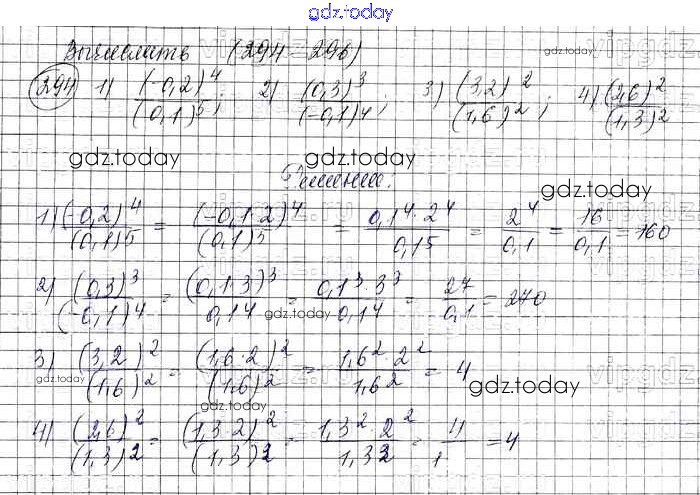 gdz.today
Вычислить (294–296)
294 1) (-0,2)^4/(0,1)^5; 2) (0,3)^3/(-0,1)^4; 3) (3,2)^2/(1,6)^2; 4) (2,6)^2/(1,3)^2
gdz.today gdz.today gdz.today
Решение:
1) (-0,2)^4/(0,1)^5 = (-0,1·2)^4/(0,1)^5 = 0,1^4·2^4/0,1^5 = 2^4/0,1 = 16/0,1 = 160
2) (0,3)^3/(-0,1)^4 = (0,1·3)^3/0,1^4 = 0,1^3·3^3/0,1^4 = 27/0,1 = 270
gdz.today
3) (3,2)^2/(1,6)^2 = (1,6·2)^2/(1,6)^2 = 1,6^2·2^2/1,6^2 = 4
gdz.today gdz.today gdz.today
4) (2,6)^2/(1,3)^2 = (1,3·2)^2/(1,3)^2 = 1,3^2·2^2/1,3^2 = 4/1 = 4